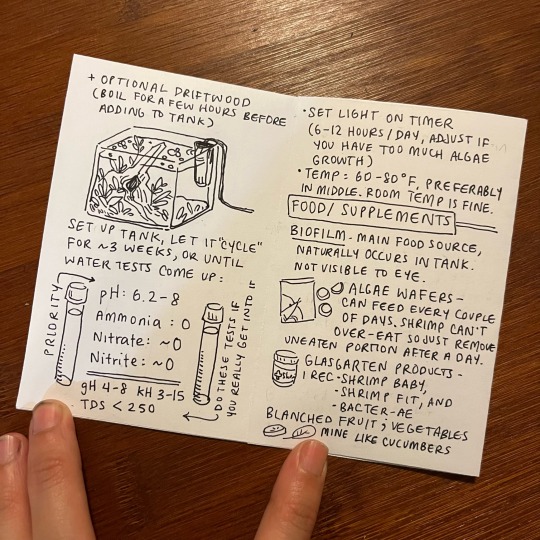 + OPTIONAL DRIFTWOOD
(BOIL FOR A FEW HOURS BEFORE
ADDING TO TANK)
SET UP TANK, LET IT "CYCLE"
FOR ~3 WEEKS, OR UNTIL
WATER TESTS COME UP:
PRIORITY
pH: 6.2-8
Ammonia: 0
Nitrate: ~0
Nitrite: ~0
gH 4-8 kH 3-15
TDS < 250
DO THESE TESTS IF
YOU REALLY GET INTO IT
• SET LIGHT ON TIMER
(6-12 HOURS/DAY, ADJUST IF
YOU HAVE TOO MUCH ALGAE
GROWTH)
• TEMP: 60-80°F, PREFERABLY
IN MIDDLE. ROOM TEMP IS FINE.
FOOD/SUPPLEMENTS
BIOFILM - MAIN FOOD SOURCE,
NATURALLY OCCURS IN TANK.
NOT VISIBLE TO EYE.
ALGAE WAFERS-
CAN FEED EVERY COUPLE
OF DAYS. SHRIMP CAN'T
OVER-EAT SO JUST REMOVE
UNEATEN PORTION AFTER A DAY.
GLASGARTEN PRODUCTS -
I REC - SHRIMP BABY,
- SHRIMP FIT, AND
- BACTER-AE
BLANCHED FRUIT; VEGETABLES
MINE LIKE CUCUMBERS